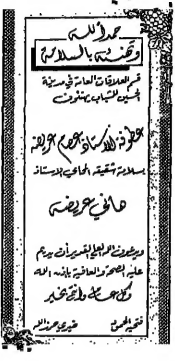 حمداً لله
وتهنئة بالسلامة
قسم العلاقات العامة في مدينة
الحسين للشباب يهنئون
عطوفة الاستاذ عصام عريضه
بسلامة شقيقه المحامي الاستاذ
هاني عريضه
ويدعون الله العلي القدير أن يديم
عليه الصحة والعافية بإذن الله
وكل عام وانتم بخير
فتحية خيري حرز الله